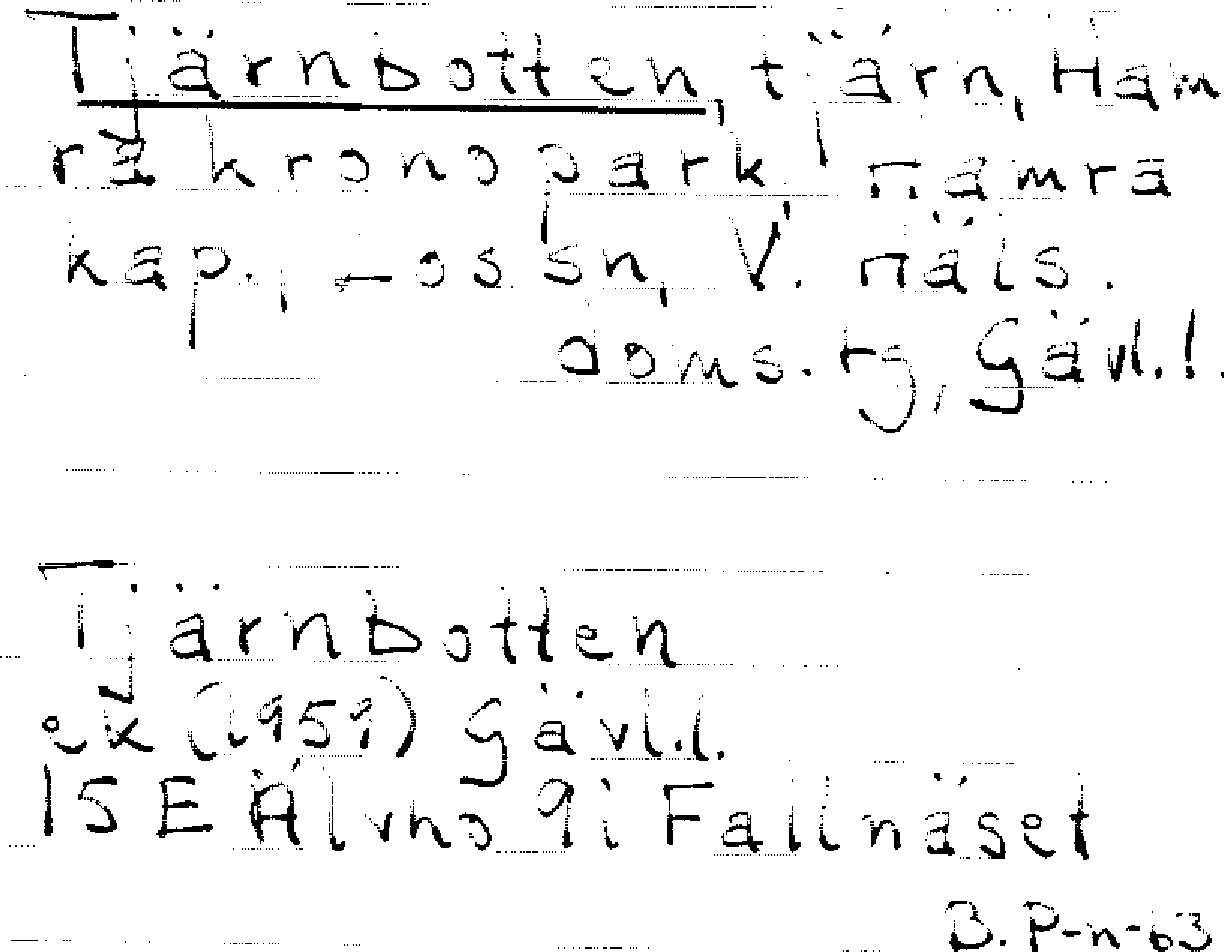 Tjärnbotten, tjärn, Ham
ra kronopark, Hamra
kap., Lossn, V. Häls.
doms.rg, Gävl.l.
Tjärnbotten
ek (1959) Gävl.l.
15E Älvho 9i Fallnäset
B. P-n-63